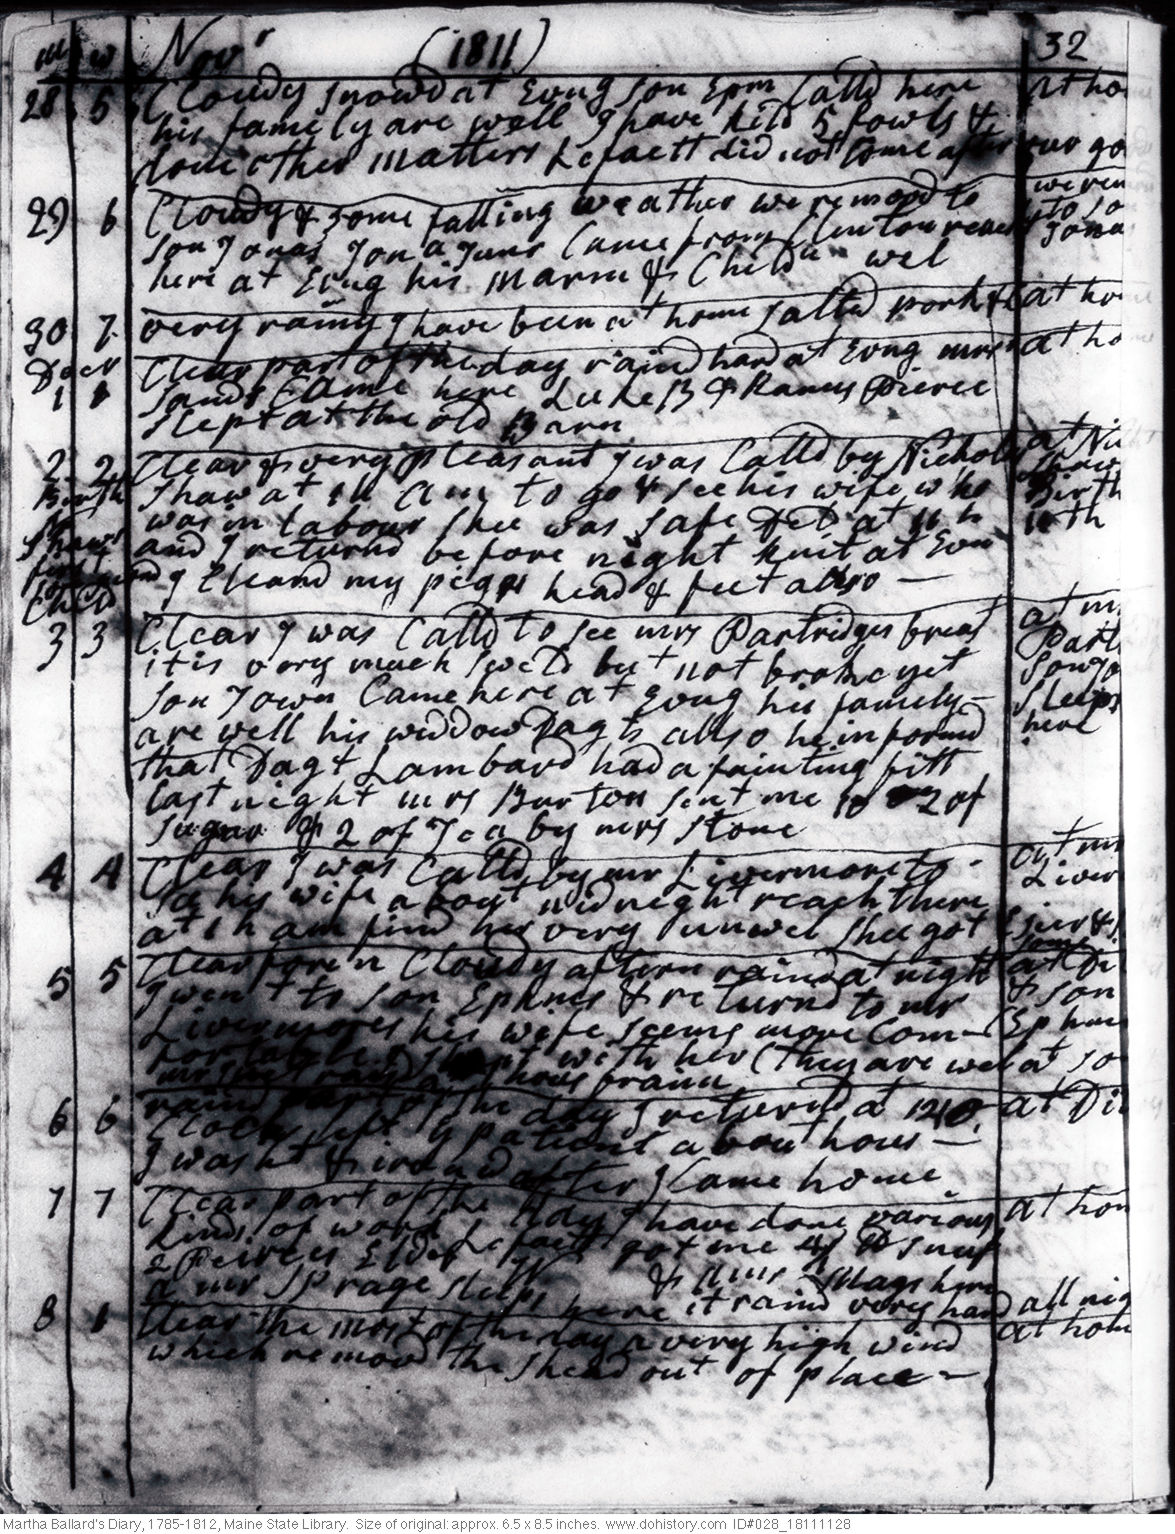 m w Novr (1811) 32
28 5 Cloudy snowd at Evng son Epm Calld here at ho
his family are well I have kild 5 fowls &
done other matters Lefaett did not Come after our go
29 6 Cloudy & some falling weather we removd to we rem
son Jonas Jona Juns Came from Clinton reach to so
here at Evng his Marm & Childn wel Jona
30 7 very rainy I have been at home salted pork & at ho
Decr Clear part of the day raind hard at Evng mrs at ho
1 1 Sands Came here Luke B & Ramey Pierce
Slept at the old Barn
2 2 Clear & very pleasant I was Calld by Nichols at Ni
Birth Shaw at 10 am to go & see his wife who Shaw
N was in labour Shee was safe Deld at 11 h Birth
Shaws and I returnd before night knit at Evn 10th
first I Cleand my pigs head & feet allso —
Child
3 3 Clear I was Calld to see mrs Partridges breast at m
it is very much sweld but not broke yet Part
son Town Came here at Evng his family Son Jo
are well his widdow Dagts allso he informd sleeps
that Dagt Lambard had a fainting fitt here
last night mrs Burton sent me 10 2 of
sugar & 2 of Tea by mrs Stone
4 4 Clear I was Calld by mr Livermore to at mr
se his wife about midnight reach there Liver
at 1 h am find her very unwel shee got
5 5 Clear foren Cloudy aftern raind at night at
I went to son Ephms & returnd to mr & son
Livermores his wife seems more Com- Ephm
fortable I slept with her (they are wel at so
6 6 raind part of the day I returnd at 12 O at Di
Clock left my patient about hous —
I washt & irond after I Came home
7 7 Clear part of the day I have done various at hom
kinds of work Lefaett got me snuf
& Peirces Eldes
a mr Sprage sleeps here it raind very hard all nig
8 1 Clear the most of the day a very high wind at home
which removd the shead out of place —
Martha Ballard's Diary, 1785-1812, Maine State Library. Size of original: approx. 6.5 x 8.5 inches. www.dohistory.com ID#028_18111128